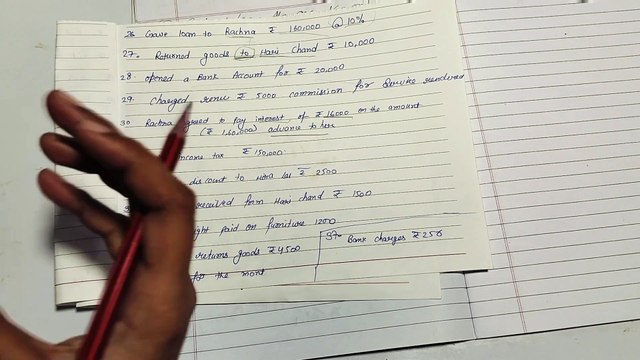 26. Gave loan to Rachna ₹ 160,000 @ 10%
27. Returned goods to Hari Chand ₹ 10,000
28. opened a Bank Account for ₹ 20,000
29. Charged ₹ 5000 commission for Service rendered
30 Rachna agreed to pay interest of ₹ 16000 on the amount
(₹ 1,60,000) advance to her
income tax ₹ 150,000.
discount to ₹ 2500
received form Hari Chand ₹ 1500
paid on furniture 1200
returns goods ₹ 4500
37. Bank charges ₹ 250
for the mont